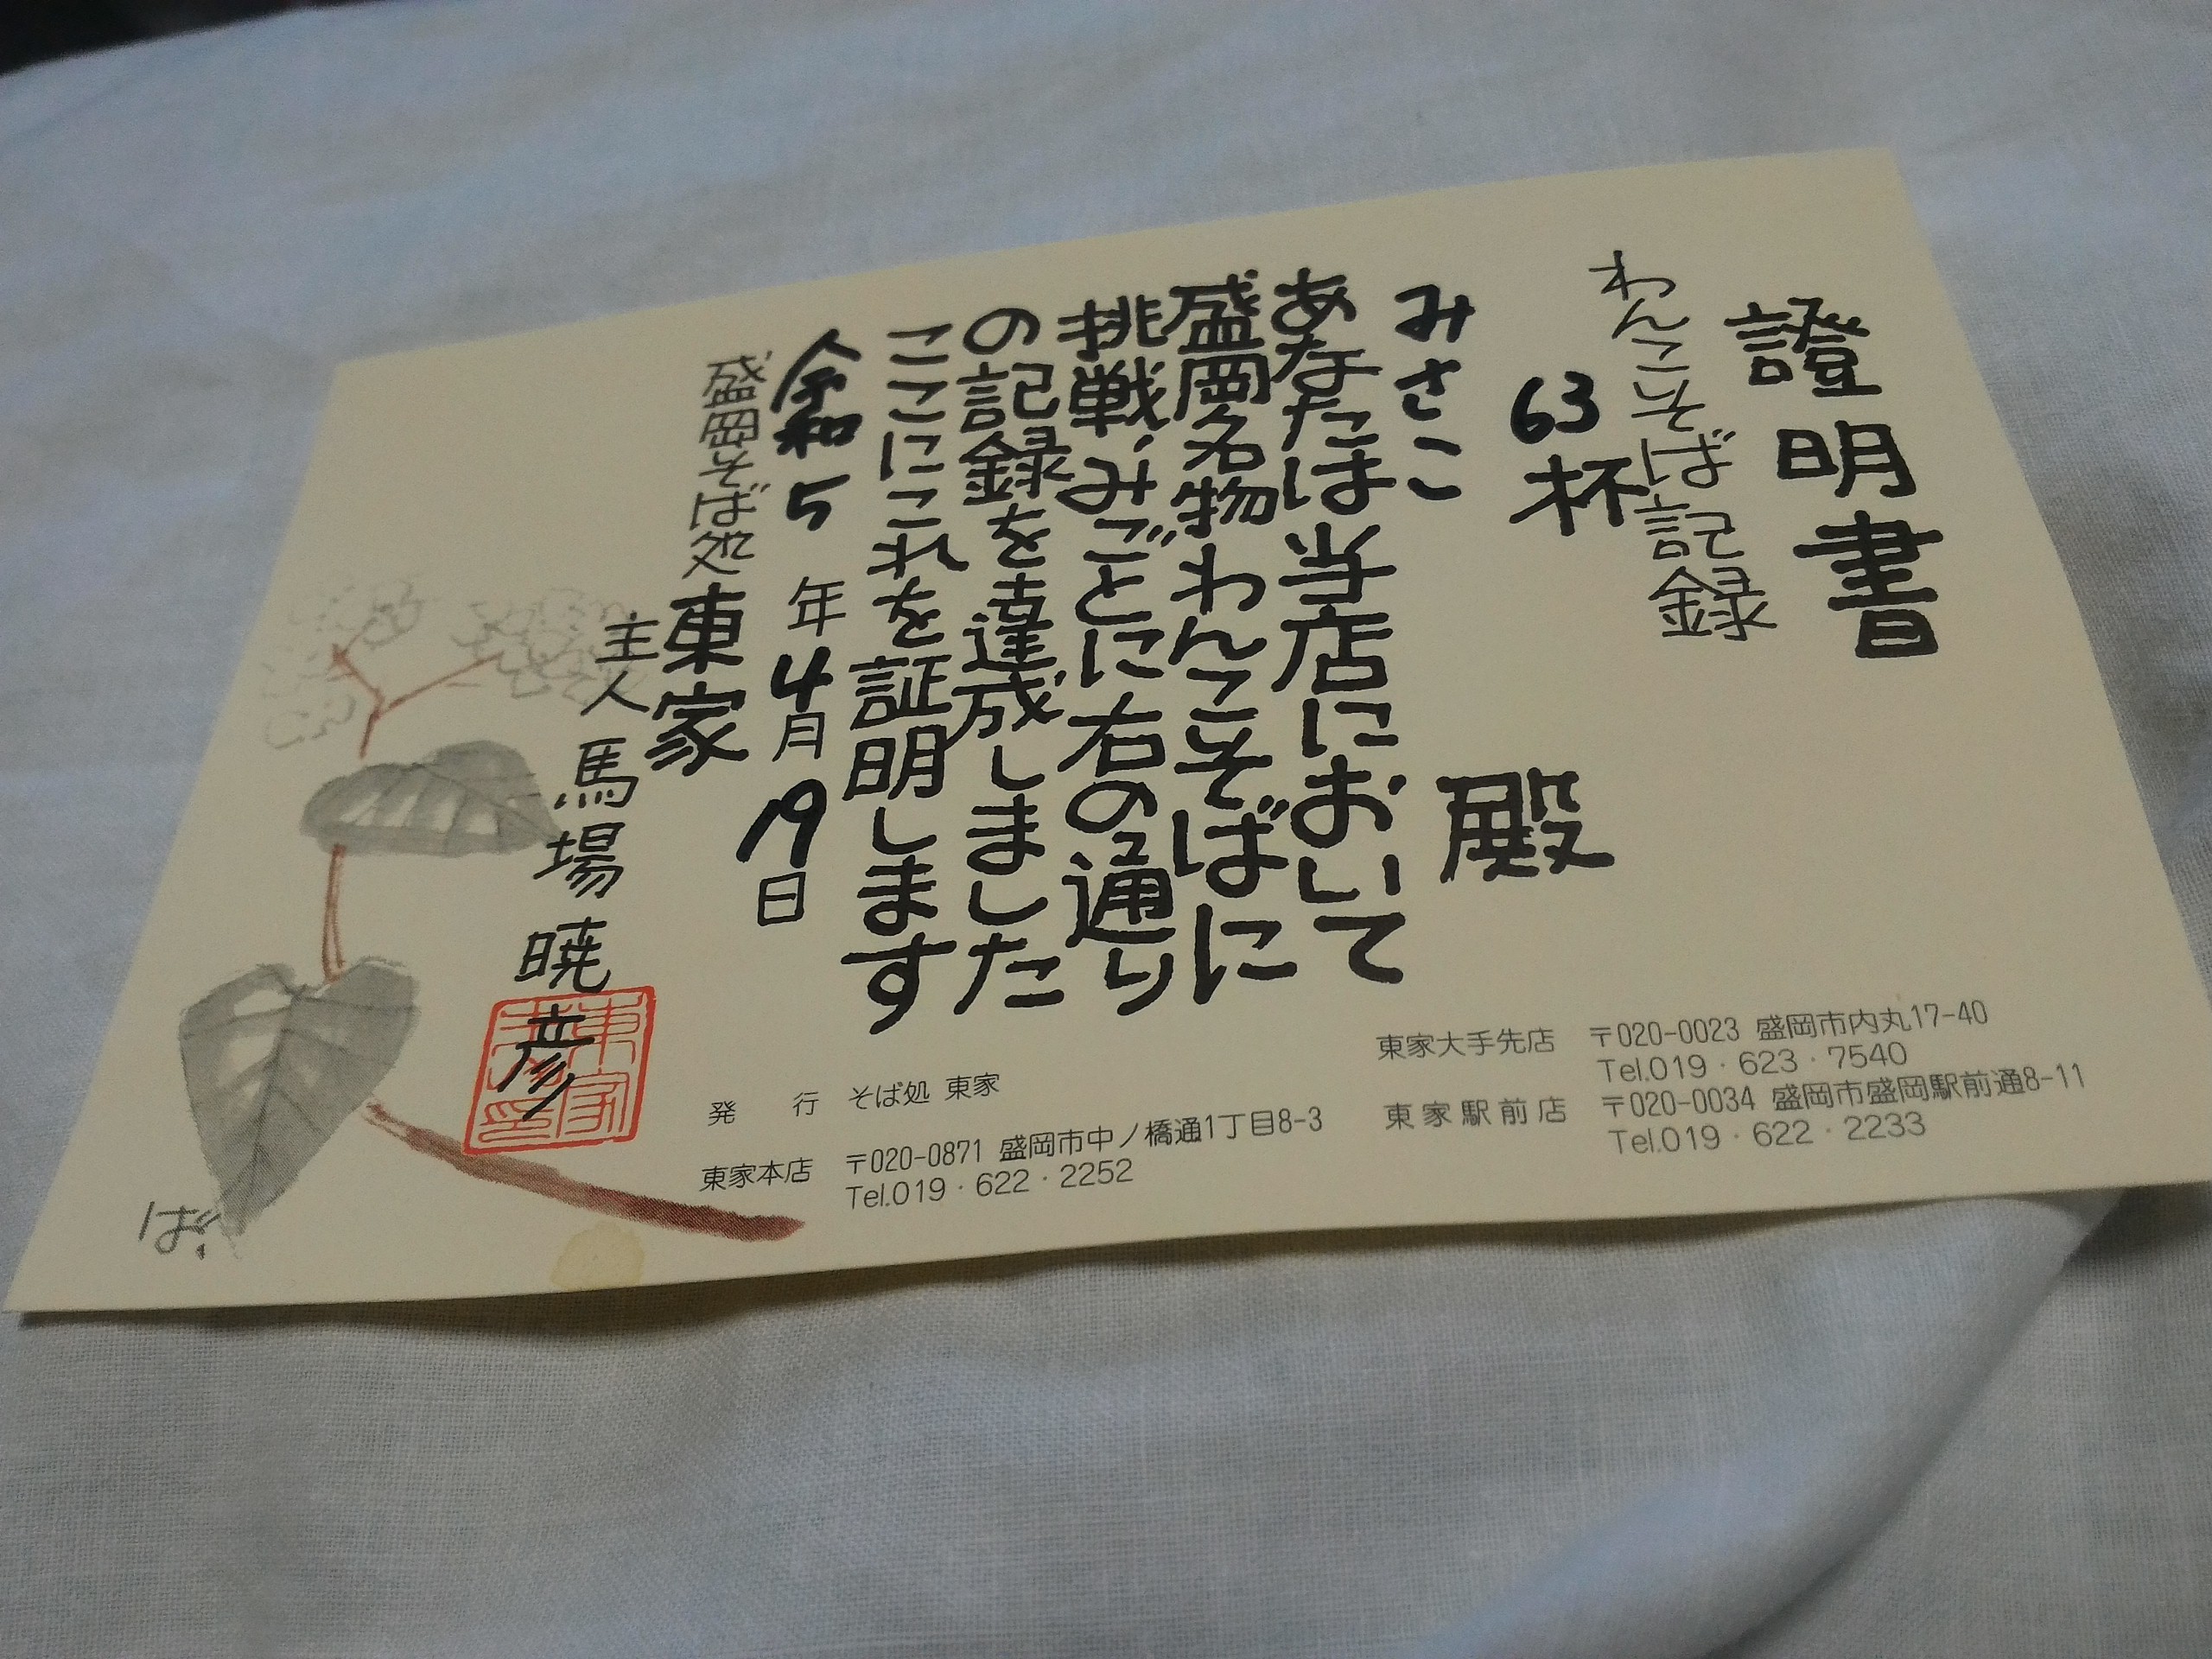 證明書
わんこそば記録
63杯
みさこ 殿
あなたは当店において
盛岡名物わんこそばに
挑戦、みごとに右の通り
の記録を達成しました
ここにこれを証明します
令和5年4月19日
盛岡そば処 東家
主人 馬場暁彦
東家
ば
発 行 そば処 東家
東家本店 〒020-0871 盛岡市中ノ橋通1丁目8-3
Tel.019・622・2252
東家大手先店 〒020-0023 盛岡市内丸17-40
Tel.019・623・7540
東家駅前店 〒020-0034 盛岡市盛岡駅前通8-11
Tel.019・622・2233